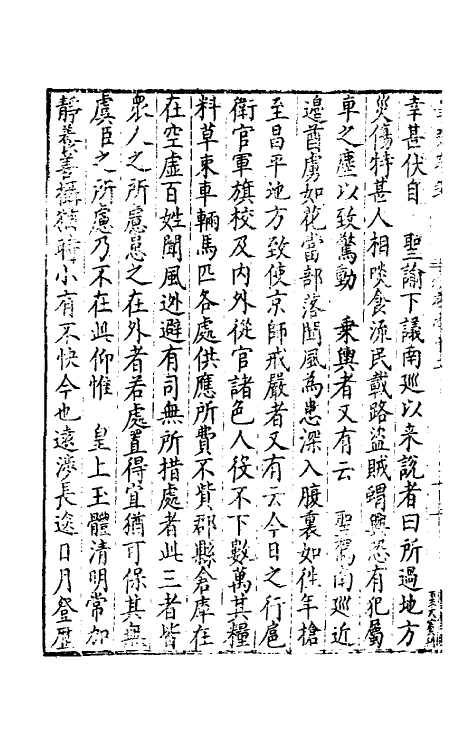 幸甚伏自　聖諭下議南巡以来說者曰所過地方
災傷特甚人相啖食流民載路盗賊竊興恐有犯屬
車之塵以致驚動　乗輿者又有云　聖駕南巡近
邊酋虜如花當部落聞風為患深入腹裏如徃年搶
至昌平地方致使京師戒嚴者又有云今日之行扈
衛官軍旗校及内外從官諸色人役不下數萬其糧
料草束車輛馬匹各處供應所費不貲郡縣倉庫在
在空虛百姓聞風迯避有司無所措處者此三者皆
衆人之所慮患之在外者若處置得宜猶可保其無
虞臣之所慮乃不在此仰惟　皇上玉體清明常加
靜養善攝猶時小有不快今也遠渉長途日月登歷